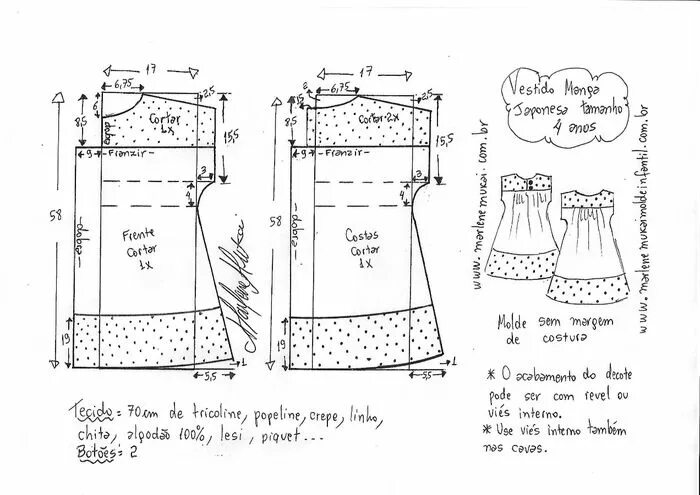 17
6,75
2,5
6
8,5
dobra
Cortar
1x
15,5
9
-Franzir-
3
4
58
dobra
Frente
Cortar
1x
19
1
5,5
17
6,75
2
1,5
2,5
8,5
Cortar 2x
15,5
9
-Franzir-
3
4
58
dobra
Costas
Cortar
1x
19
1
5,5
Marlene Mukai
Vestido Manga
Japonesa tamanho
4 anos
www.marlenemukai.com.br
www.marlenemukaimoldeinfantil.com.br
Molde sem margem
de costura
* O acabamento do decote
pode ser com revel ou
viés interno.
* Use viés interno também
nas cavas.
Tecido = 70 cm de tricoline, popeline, crepe, linho,
chita, algodão 100%, lesi, piquet...
Botões: 2